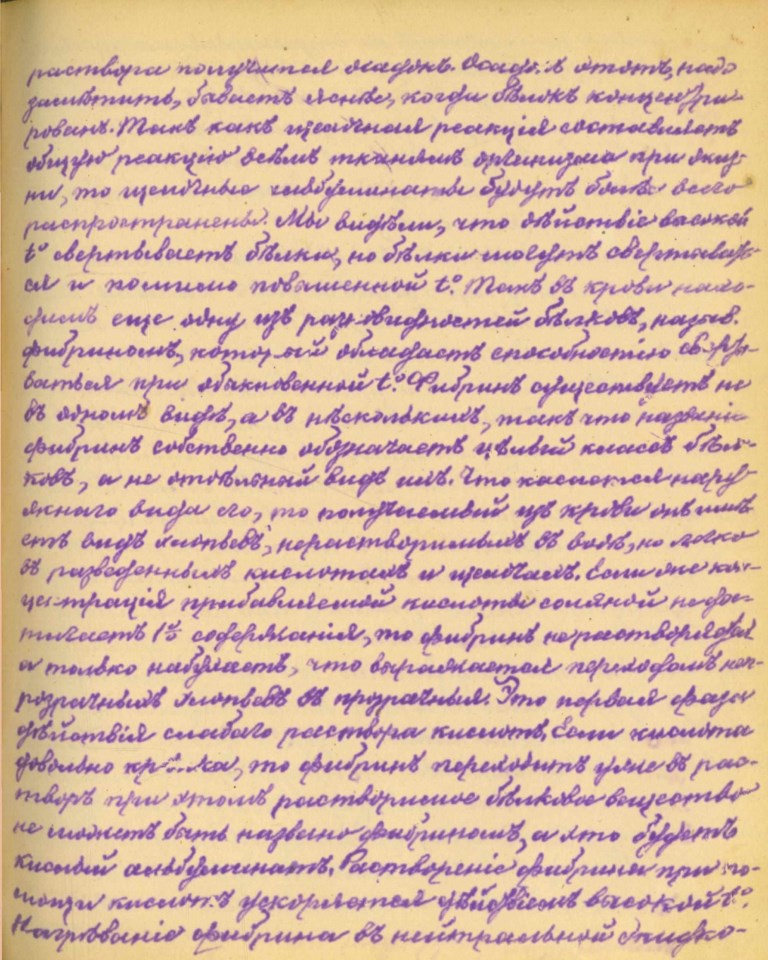 раствора получится осадокъ. Осадокъ этотъ, надо
замѣтить, бываетъ яснѣе, когда бѣлокъ концентри-
рованъ. Такъ какъ щелочная реакція составляетъ
общую реакцію всѣмъ тканямъ организма при жиз-
ни, то щелочные альбуминаты будутъ болѣе всего
распространены. Мы видѣли, что дѣйствіе высокой
t° свертываетъ бѣлки, но бѣлки могутъ свертывать-
ся и помимо повышенной t°. Такъ въ крови нахо-
димъ еще одну изъ разновидностей бѣлковъ, назыв.
фибриномъ, который обладаетъ способностію сверты-
ваться при обыкновенной t°. Фибринъ существуетъ не
въ одномъ видѣ, а въ нѣсколькихъ, такъ что названіе
фибринъ собственно обозначаетъ цѣлый классъ бѣл-
ковъ, а не отдѣльный видъ ихъ. Что касается нару-
жнаго вида его, то получаемый изъ крови онъ имѣ-
етъ видъ хлопьевъ, нерастворимыхъ въ водѣ, но легко
въ разведенныхъ кислотахъ и щелочахъ. Если же кон-
центрація прибавляемой кислоты соляной не до-
стигаетъ 1% содержанія, то фибринъ не растворяется
а только набухаетъ, что выражается переходомъ неп-
розрачныхъ хлопьевъ въ прозрачныя. Это первая фаза
дѣйствія слабаго раствора кислотъ. Если кислота
довольно крѣпка, то фибринъ переходитъ уже въ рас-
творъ при этомъ растворимое бѣлковое вещество
не можетъ быть названо фибриномъ, а это будетъ
кислый альбуминатъ. Раствореніе фибрина при по-
мощи кислотъ ускоряется дѣйствіемъ высокой t°.
Нагрѣваніе фибрина въ нейтральной жидко-